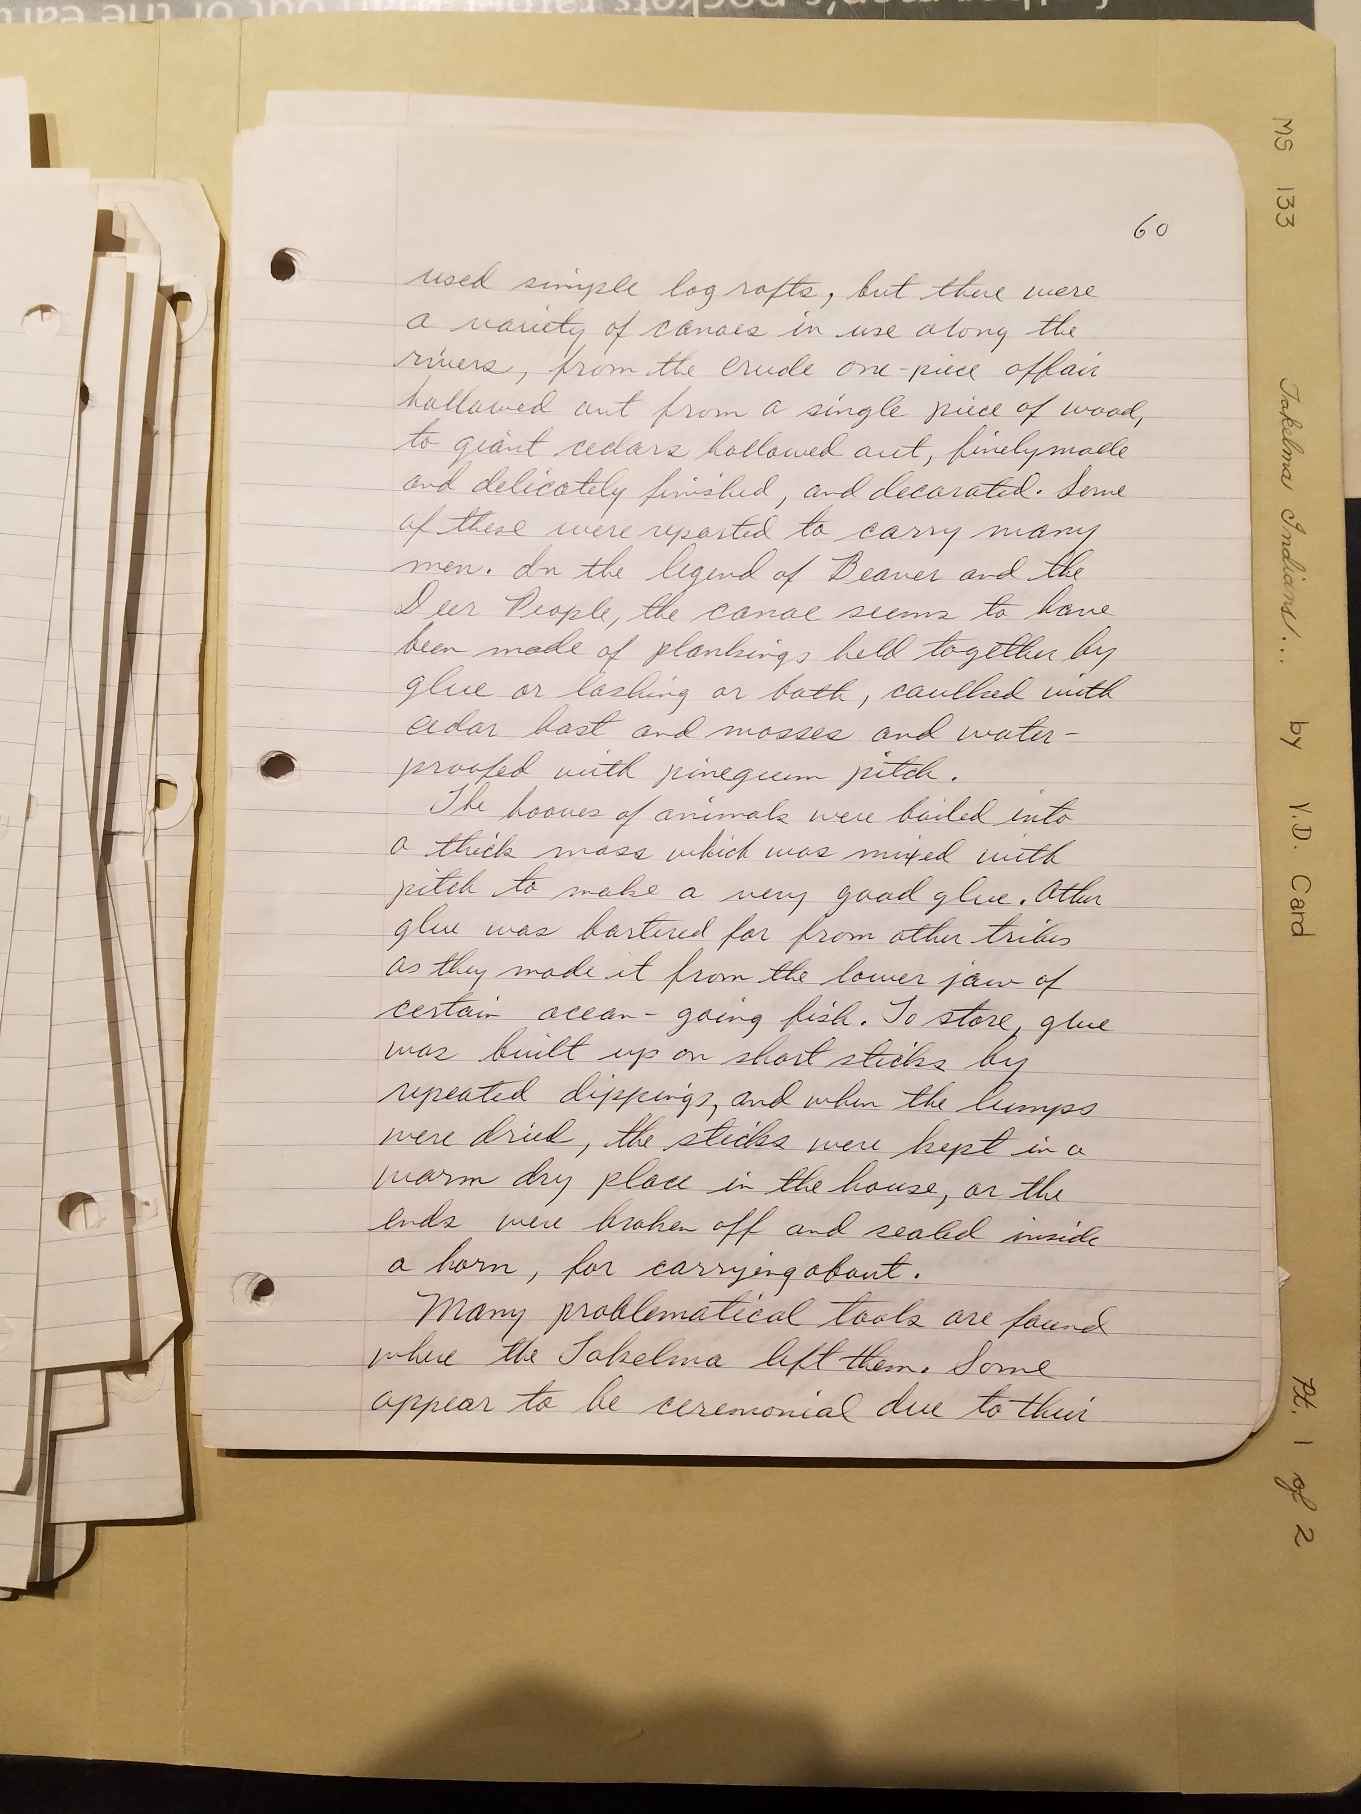 60
used simple log rafts, but there were
a variety of canoes in use along the
rivers, from the crude one-piece affair
hollowed out from a single piece of wood,
to giant cedars hollowed out, finely made
and delicately finished, and decorated. Some
of these were reported to carry many
men. In the legend of Beaver and the
Deer People, the canoe seems to have
been made of plankings held together by
glue or lashing or both, caulked with
cedar bast and mosses and water-
proofed with pinegum pitch.
The hooves of animals were boiled into
a thick mass which was mixed with
pitch to make a very good glue. Other
glue was bartered for from other tribes
as they made it from the lower jaw of
certain ocean-going fish. To store, glue
was built up on short sticks by
repeated dippings, and when the lumps
were dried, the sticks were kept in a
warm dry place in the house, or the
ends were broken off and sealed inside
a horn, for carrying about.
Many problematical tools are found
where the Takelma left them. Some
appear to be ceremonial due to their
MS 133 Takelma Indians... by V.D. Card Pt. 1 of 2